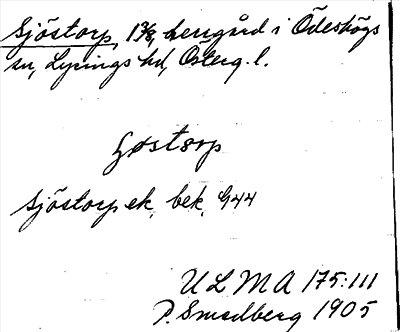 Sjöstorp, 1 3/8, herrgård i Ödeshögs
sn, Lysings hd, Österg. l.
Sjöstorp ek, bek, G44
ULMA 175:111
P. Smedberg 1905